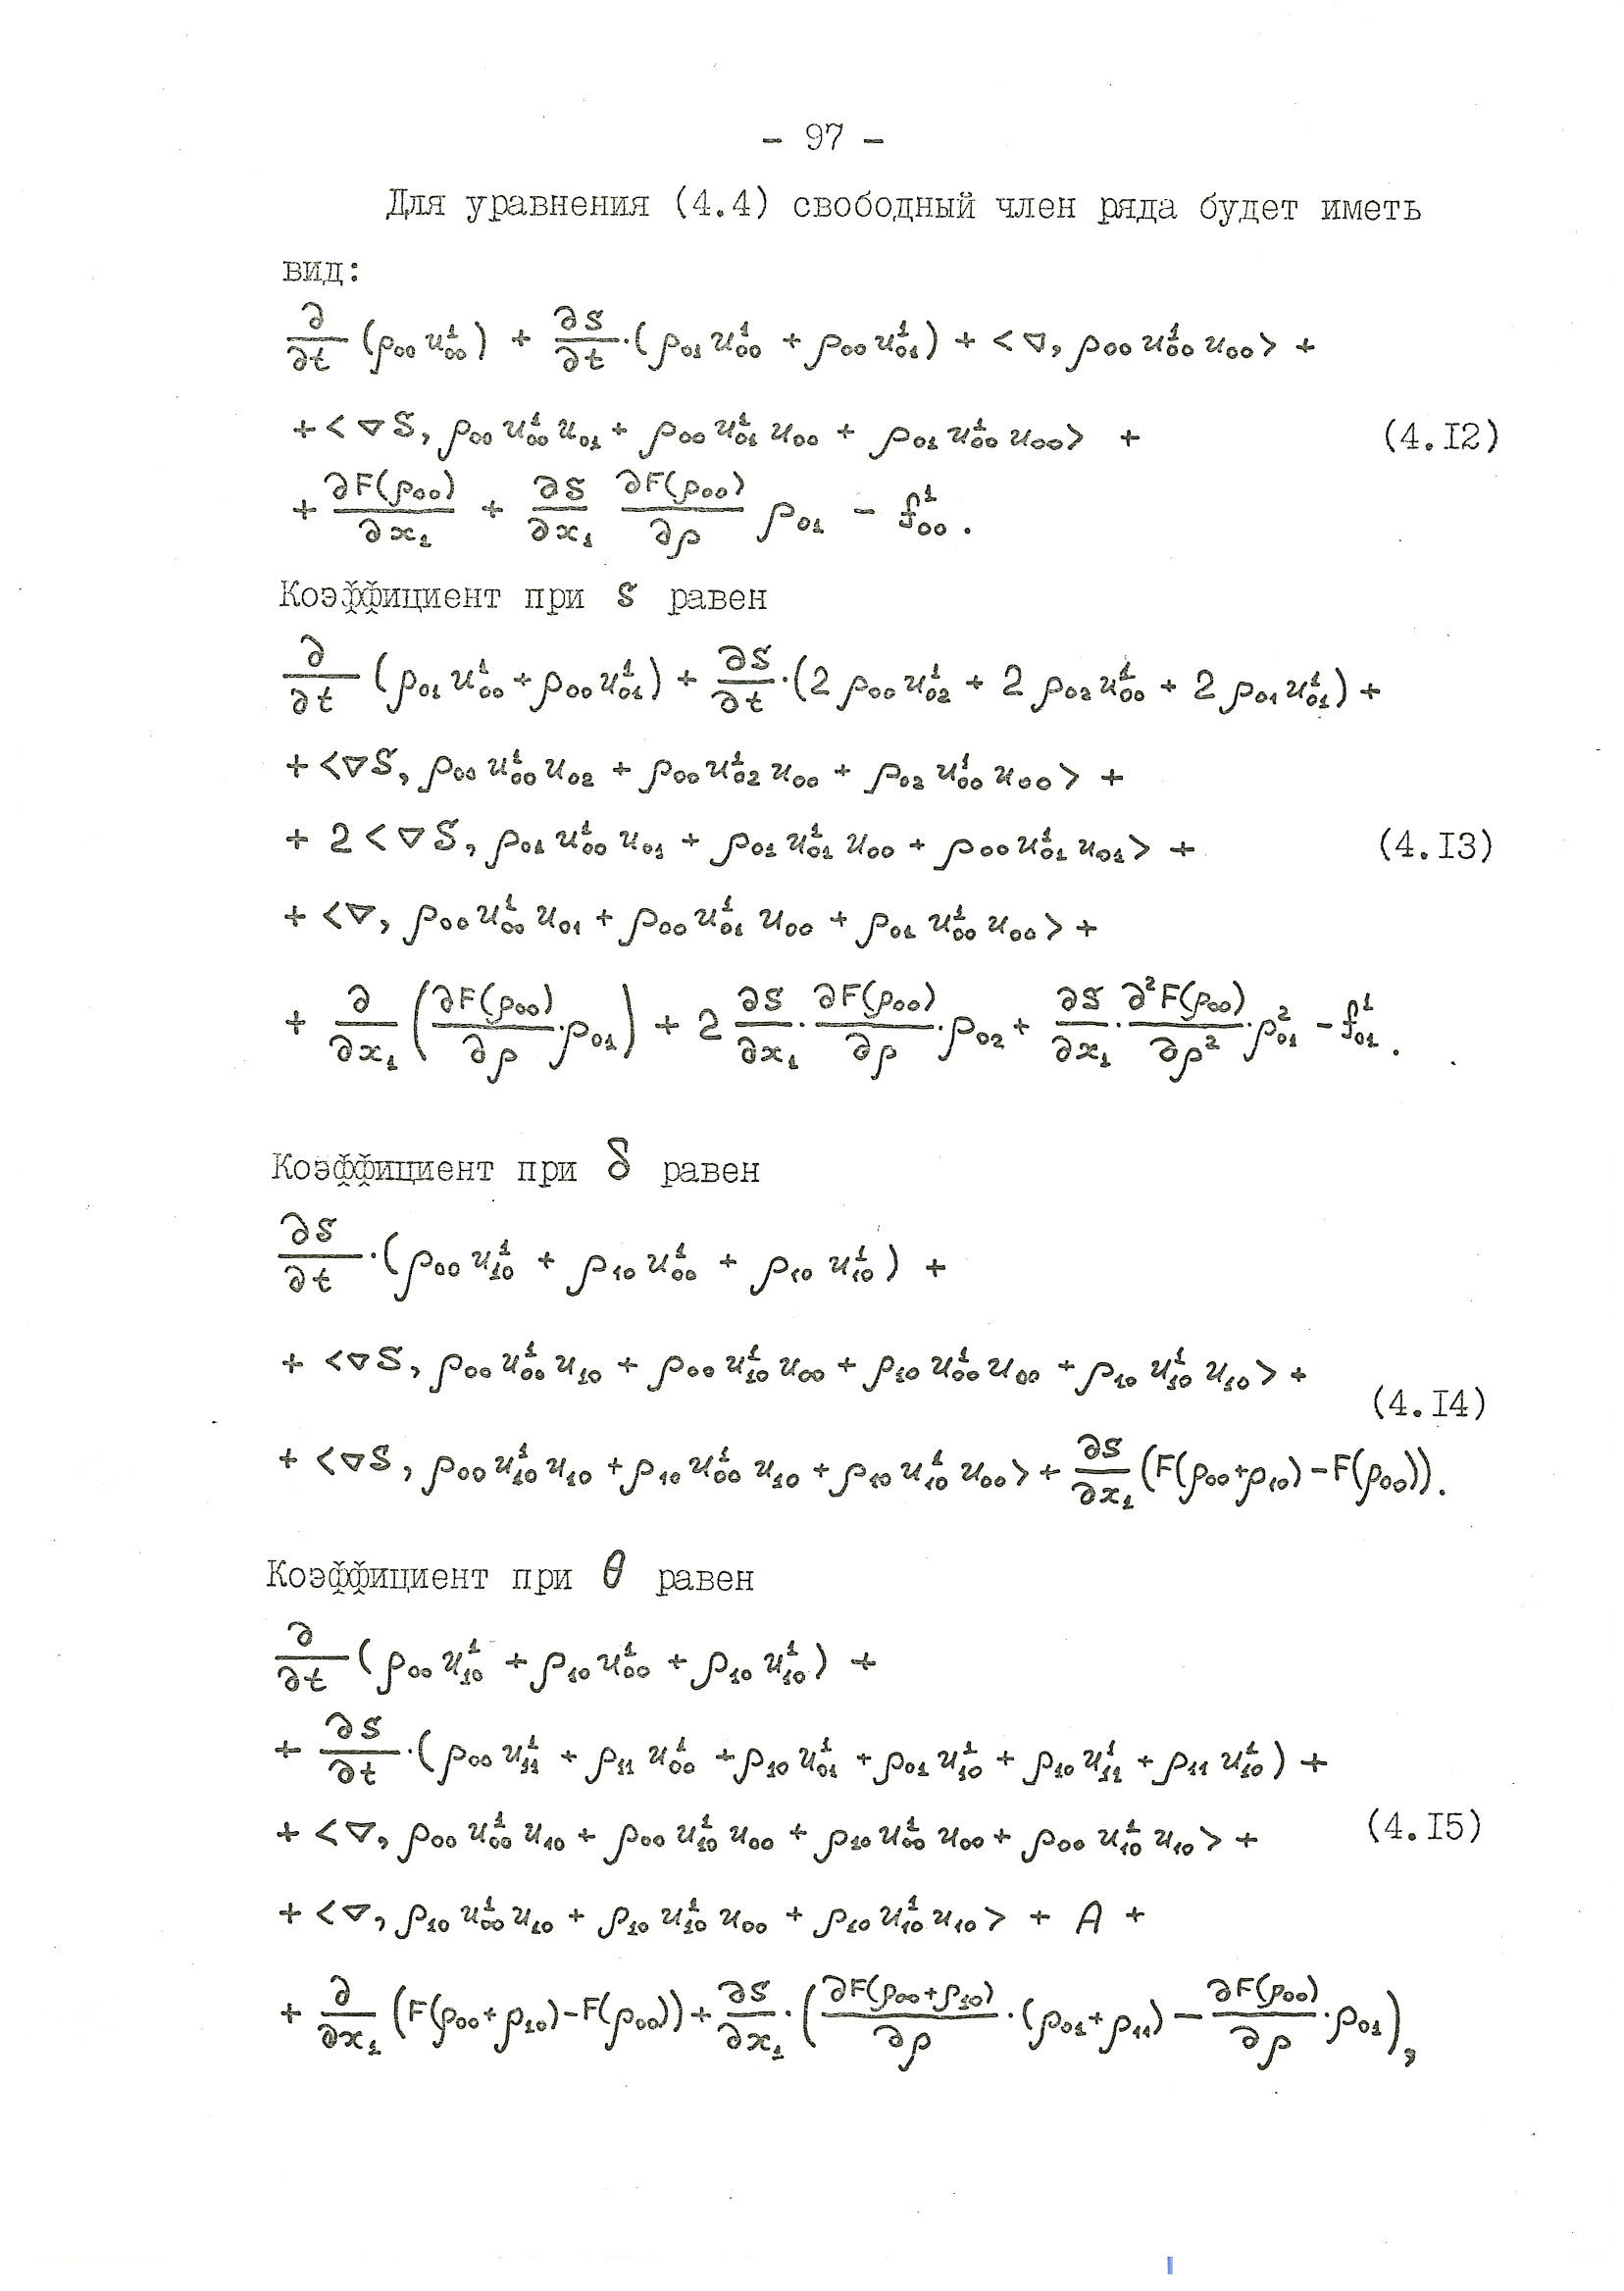 - 97 -
Для уравнения (4.4) свободный член ряда будет иметь
вид:
∂/∂t (ρ₀₀ u¹₀₀) + ∂S/∂t·(ρ₀₁ u¹₀₀ + ρ₀₀ u¹₀₁) + <∇, ρ₀₀ u¹₀₀ u₀₀> +
+ <∇S, ρ₀₀ u¹₀₀ u₀₁ + ρ₀₀ u¹₀₁ u₀₀ + ρ₀₁ u¹₀₀ u₀₀> + (4.I2)
+ ∂F(ρ₀₀)/∂x₁ + ∂S/∂x₁ ∂F(ρ₀₀)/∂ρ ρ₀₁ - f¹₀₀.
Коэффициент при S равен
∂/∂t (ρ₀₁ u¹₀₀ + ρ₀₀ u¹₀₁) + ∂S/∂t·(2 ρ₀₀ u¹₀₂ + 2 ρ₀₂ u¹₀₀ + 2 ρ₀₁ u¹₀₁) +
+ <∇S, ρ₀₀ u¹₀₀ u₀₂ + ρ₀₀ u¹₀₂ u₀₀ + ρ₀₂ u¹₀₀ u₀₀> +
+ 2 <∇S, ρ₀₁ u¹₀₀ u₀₁ + ρ₀₁ u¹₀₁ u₀₀ + ρ₀₀ u¹₀₁ u₀₁> + (4.I3)
+ <∇, ρ₀₀ u¹₀₀ u₀₁ + ρ₀₀ u¹₀₁ u₀₀ + ρ₀₁ u¹₀₀ u₀₀> +
+ ∂/∂x₁ (∂F(ρ₀₀)/∂ρ·ρ₀₁) + 2 ∂S/∂x₁·∂F(ρ₀₀)/∂ρ·ρ₀₂ + ∂S/∂x₁·∂²F(ρ₀₀)/∂ρ²·ρ²₀₁ - f¹₀₁.
Коэффициент при δ равен
∂S/∂t·(ρ₀₀ u¹₁₀ + ρ₁₀ u¹₀₀ + ρ₁₀ u¹₁₀) +
+ <∇S, ρ₀₀ u¹₀₀ u₁₀ + ρ₀₀ u¹₁₀ u₀₀ + ρ₁₀ u¹₀₀ u₀₀ + ρ₁₀ u¹₁₀ u₁₀> +
(4.I4)
+ <∇S, ρ₀₀ u¹₁₀ u₁₀ + ρ₁₀ u¹₀₀ u₁₀ + ρ₁₀ u¹₁₀ u₀₀> + ∂S/∂x₁ (F(ρ₀₀+ρ₁₀) - F(ρ₀₀)).
Коэффициент при θ равен
∂/∂t (ρ₀₀ u¹₁₀ + ρ₁₀ u¹₀₀ + ρ₁₀ u¹₁₀) +
+ ∂S/∂t·(ρ₀₀ u¹₁₁ + ρ₁₁ u¹₀₀ + ρ₁₀ u¹₀₁ + ρ₀₁ u¹₁₀ + ρ₁₀ u¹₁₁ + ρ₁₁ u¹₁₀) +
+ <∇, ρ₀₀ u¹₀₀ u₁₀ + ρ₀₀ u¹₁₀ u₀₀ + ρ₁₀ u¹₀₀ u₀₀ + ρ₀₀ u¹₁₀ u₁₀> + (4.I5)
+ <∇, ρ₁₀ u¹₀₀ u₁₀ + ρ₁₀ u¹₁₀ u₀₀ + ρ₁₀ u¹₁₀ u₁₀> + A +
+ ∂/∂x₁ (F(ρ₀₀+ρ₁₀) - F(ρ₀₀)) + ∂S/∂x₁·(∂F(ρ₀₀+ρ₁₀)/∂ρ·(ρ₀₁+ρ₁₁) - ∂F(ρ₀₀)/∂ρ·ρ₀₁),